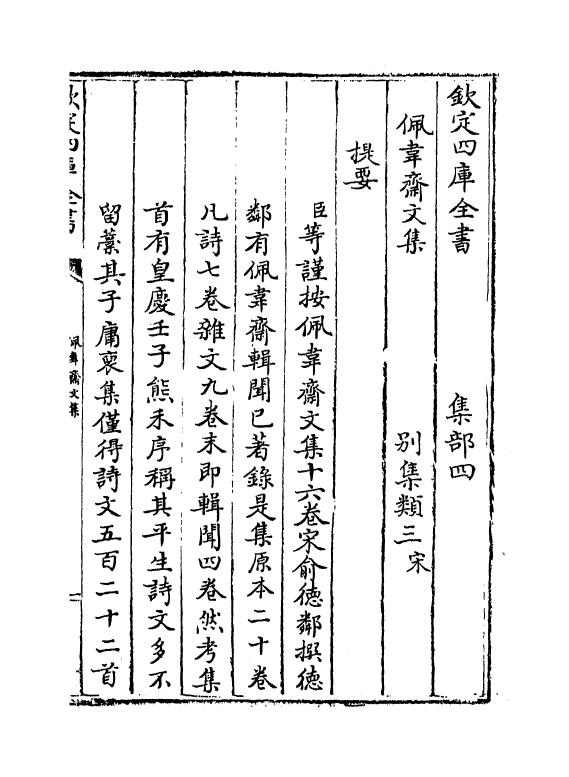 欽定四庫全書　集部四
佩韋齋文集　別集類三宋
提要
臣等謹按佩韋齋文集十六卷宋俞德鄰撰德
鄰有佩韋齋輯聞已著錄是集原本二十卷
凡詩七卷雜文九卷末即輯聞四卷然考集
首有皇慶壬子熊禾序稱其平生詩文多不
留藳其子庸裒集僅得詩文五百二十二首
欽定四庫全書
佩韋齋文集
一